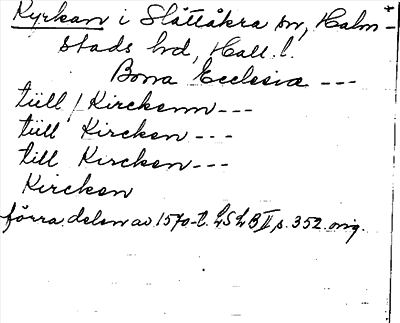 Kyrkan i Slättåkra sn, Halm-
stads hd, Hall. l.
Bona Ecclesiæ ---
tüll / Kirckenn ---
tüll Kircken ---
till Kircken ---
Kircken
förra delen av 1570-t. LSLB II s. 352. orig.